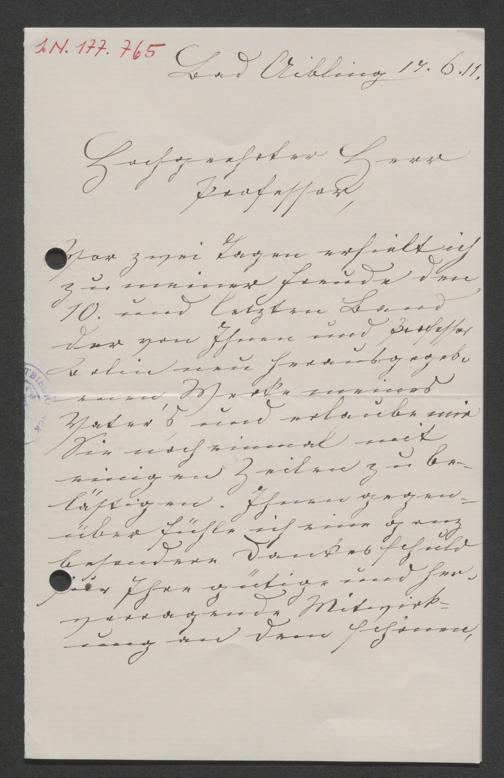 I.N. 177.765
Bad Aibling 17. 6. 11.
Hochgeehrter Herr
Professor,
Vor zwei Tagen erhielt ich
zu meiner Freude den
10. und letzten Band
der von Ihnen und Professor
Bolin neu herausgegeb-
enen Werke meines
Vater's und erlaube mir
Sie noch einmal mit
einigen Zeilen zu be-
lästigen. Ihnen gegen-
über fühle ich eine ganz
besondere Dankesschuld
für Ihre gütige und her-
vorragende Mitwirk-
ung an dem schönen,